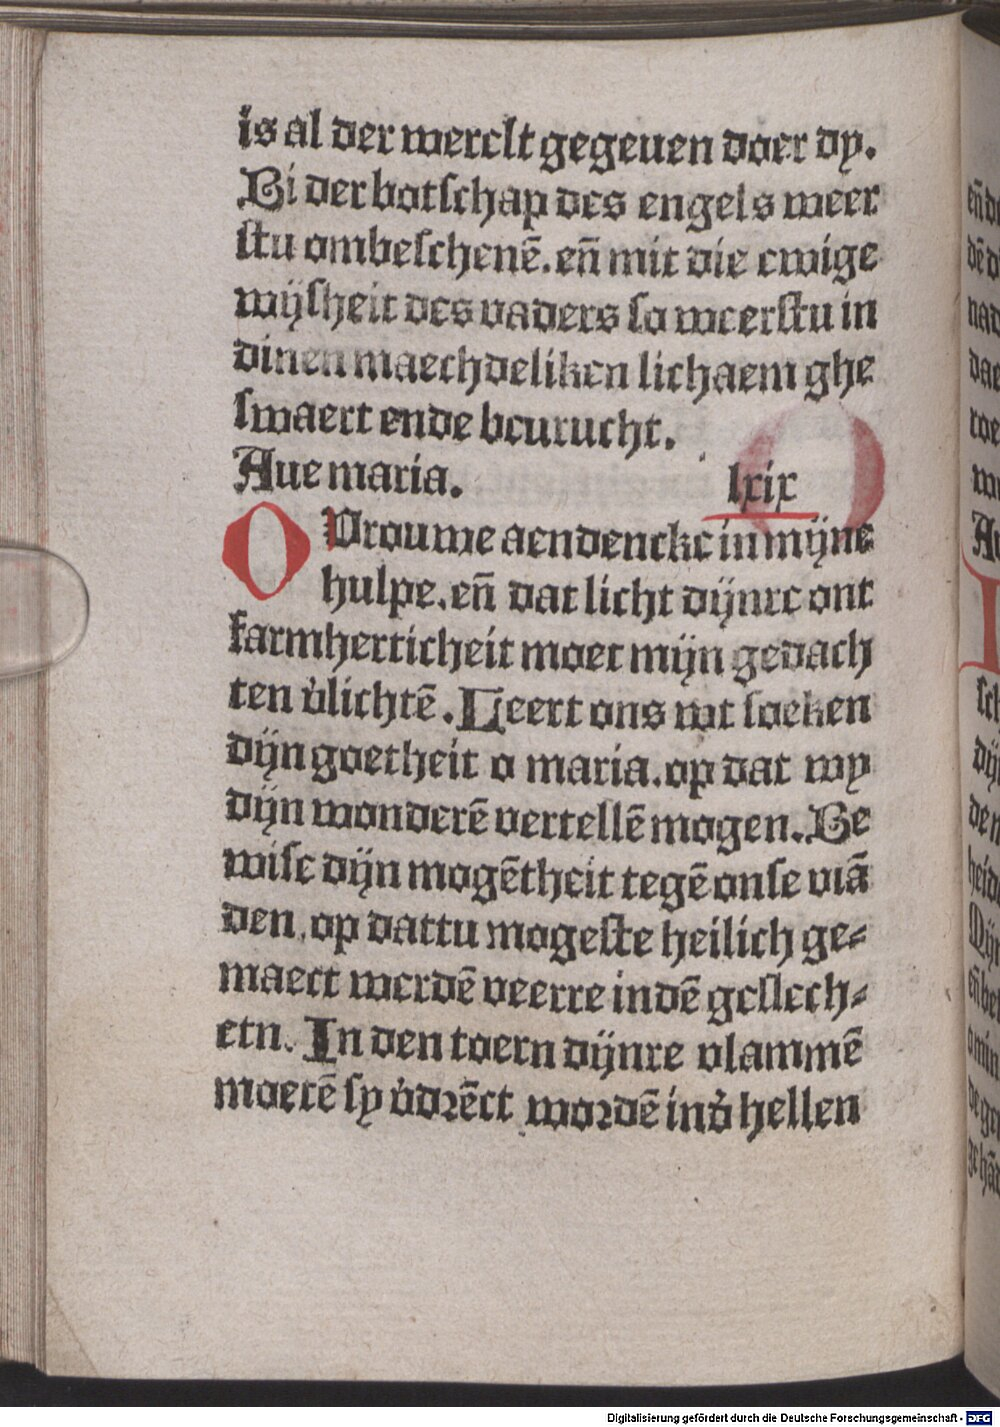 is al der werelt gegeuen doer dy.
Bi der botschap des engels weer
stu ombeschenē. en̄ mit die ewige
wijsheit des vaders so weerstu in
dinen maechdeliken lichaem ghe
swaert ende beurucht.
Aue maria. lxix
O Vrouwe aendencke in mijne
hulpe. en̄ dat licht dijnre ont
farmherticheit moet mijn gedach
ten v̓lichtē. Leert ons wt soeken
dijn goetheit o maria. op dat wy
dijn wonderē vertellē mogen. Be
wise dijn mogētheit tegē onse viā
den. op dattu mogeste heilich ge⸗
maect werdē veerre indē geslech⸗
etn. In den toern dijnre vlammē
moetē sy v̓drēct wordē ind̓ hellen
Digitalisierung gefördert durch die Deutsche Forschungsgemeinschaft - DFG